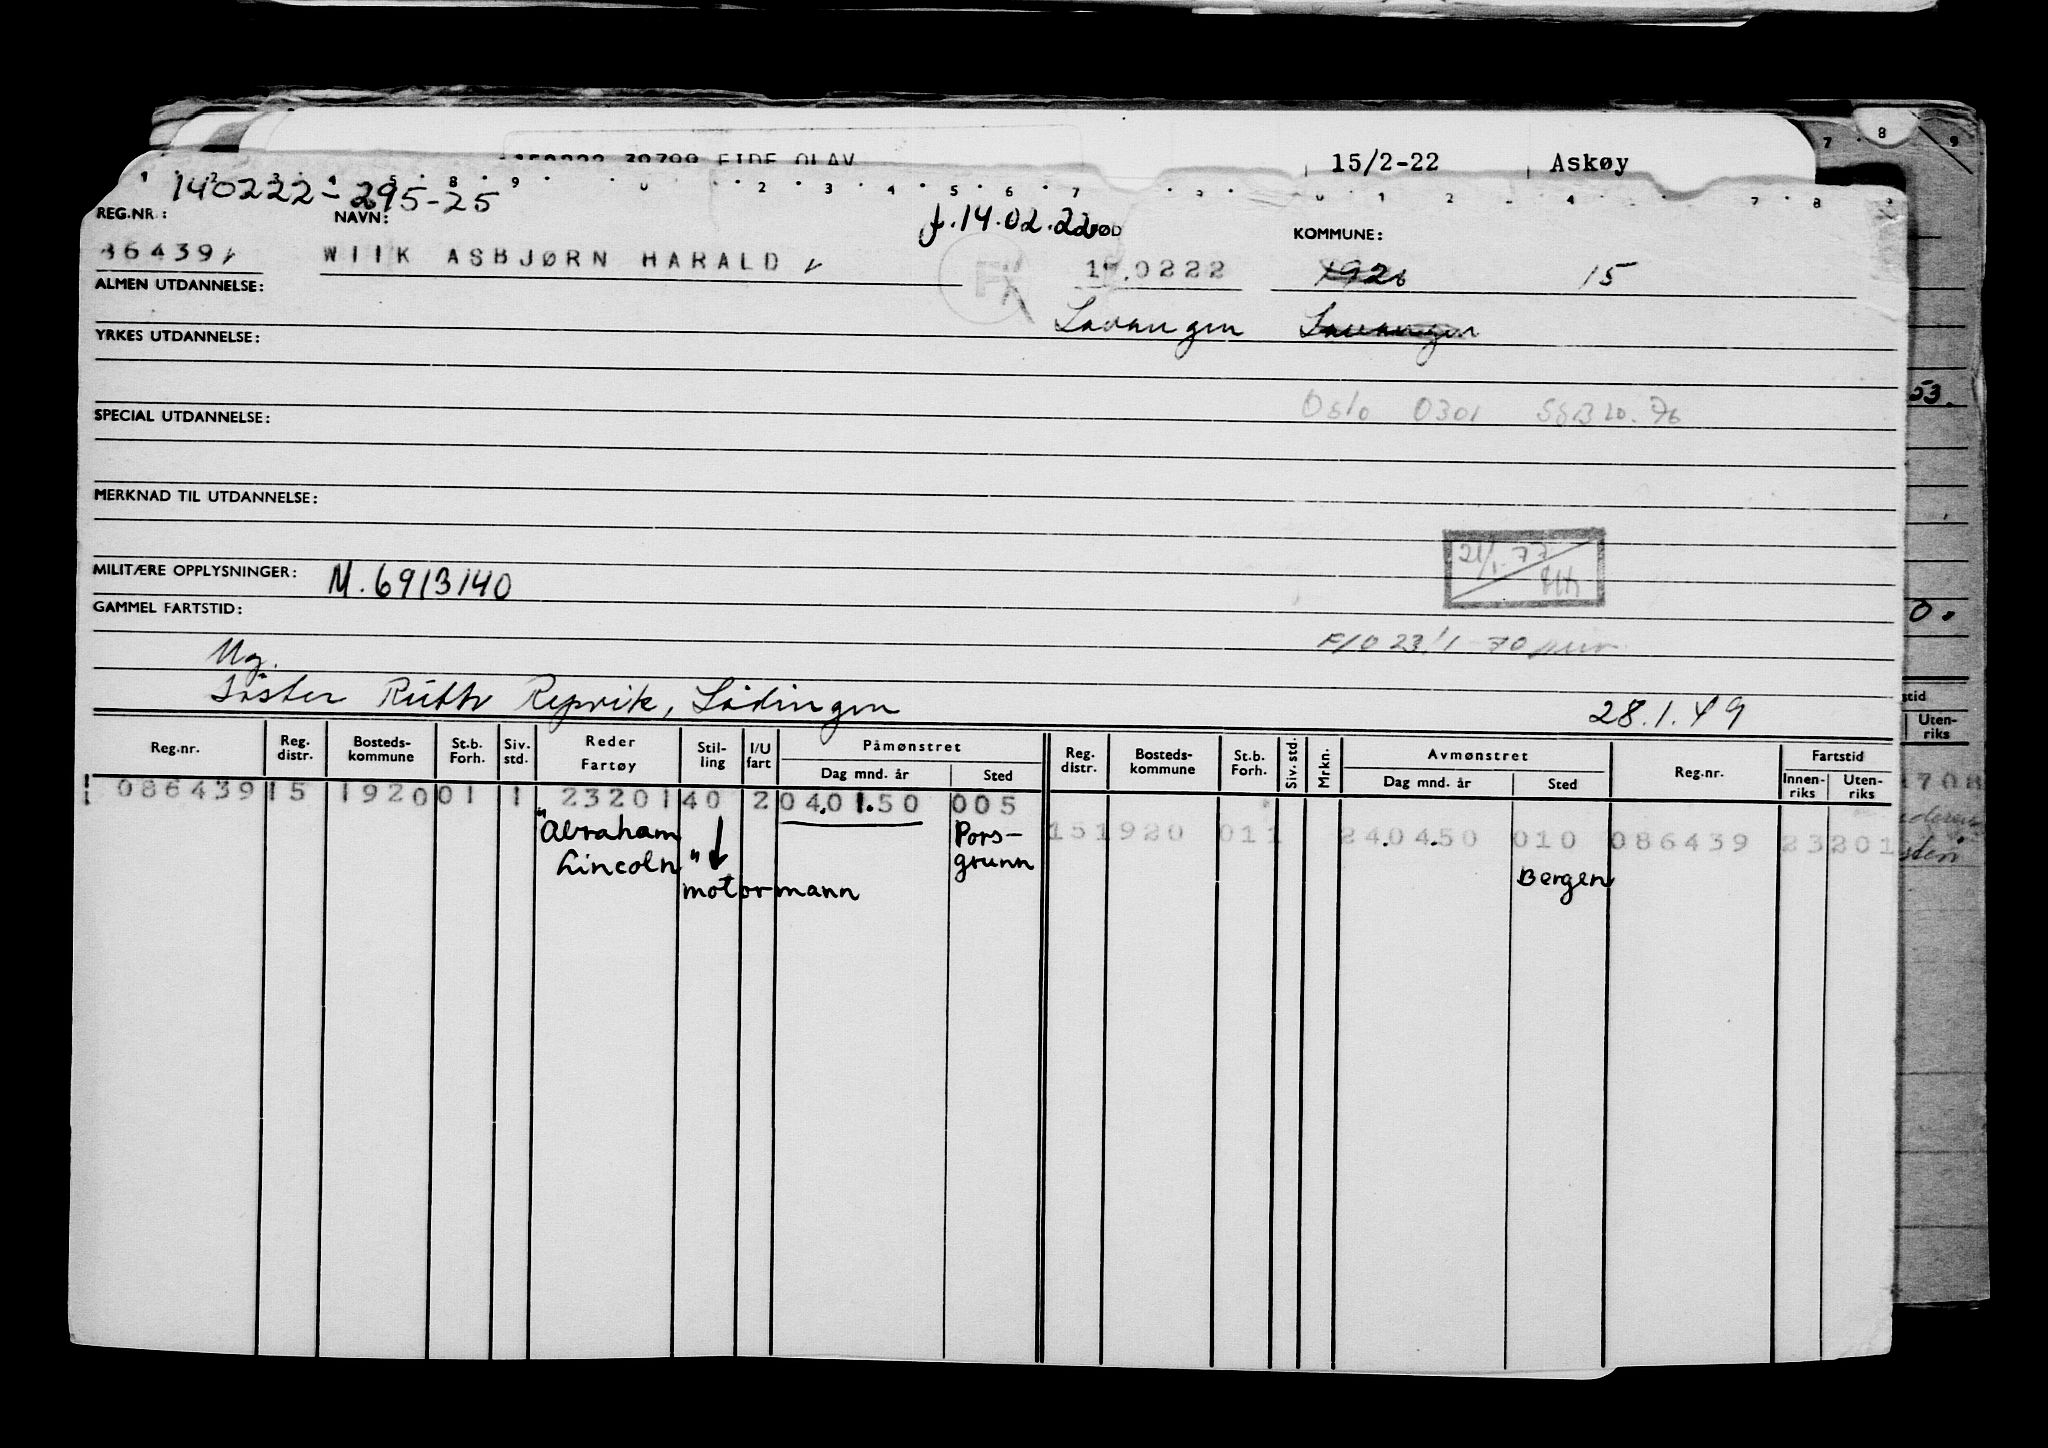 15/2-22 Askøy
140222-295-25
REG.NR.: NAVN: f.14.02.22 KOMMUNE:
86439 WIIK ASBJØRN HARALD 0222 15
ALMEN UTDANNELSE:
Lavangen Lavangen
YRKES UTDANNELSE:
Oslo 0301
SPECIAL UTDANNELSE:
MERKNAD TIL UTDANNELSE:
21/1-77
MILITÆRE OPPLYSNINGER: M.6913140
GAMMEL FARTSTID:
23/1-70
Ug.
Søster Ruth Repvik, Lødingen 28.1.49
Reg.nr. Reg. distr. Bosteds-kommune St.b. Forh. Siv. std. Reder Fartøy Stil-ling I/U fart Påmønstret Dag mnd. år Sted Reg. distr. Bosteds-kommune St.b. Forh. Siv. std. Mrkn. Avmønstret Dag mnd. år Sted Reg.nr. Fartstid Innen-riks Uten-riks
086439 15 1920 01 1 23201 40 2 04.01.50 005
"Abraham Lincoln" motormann Pors-grunn
15 1920 01 1 24.04.50 010 086439 23201
Bergen